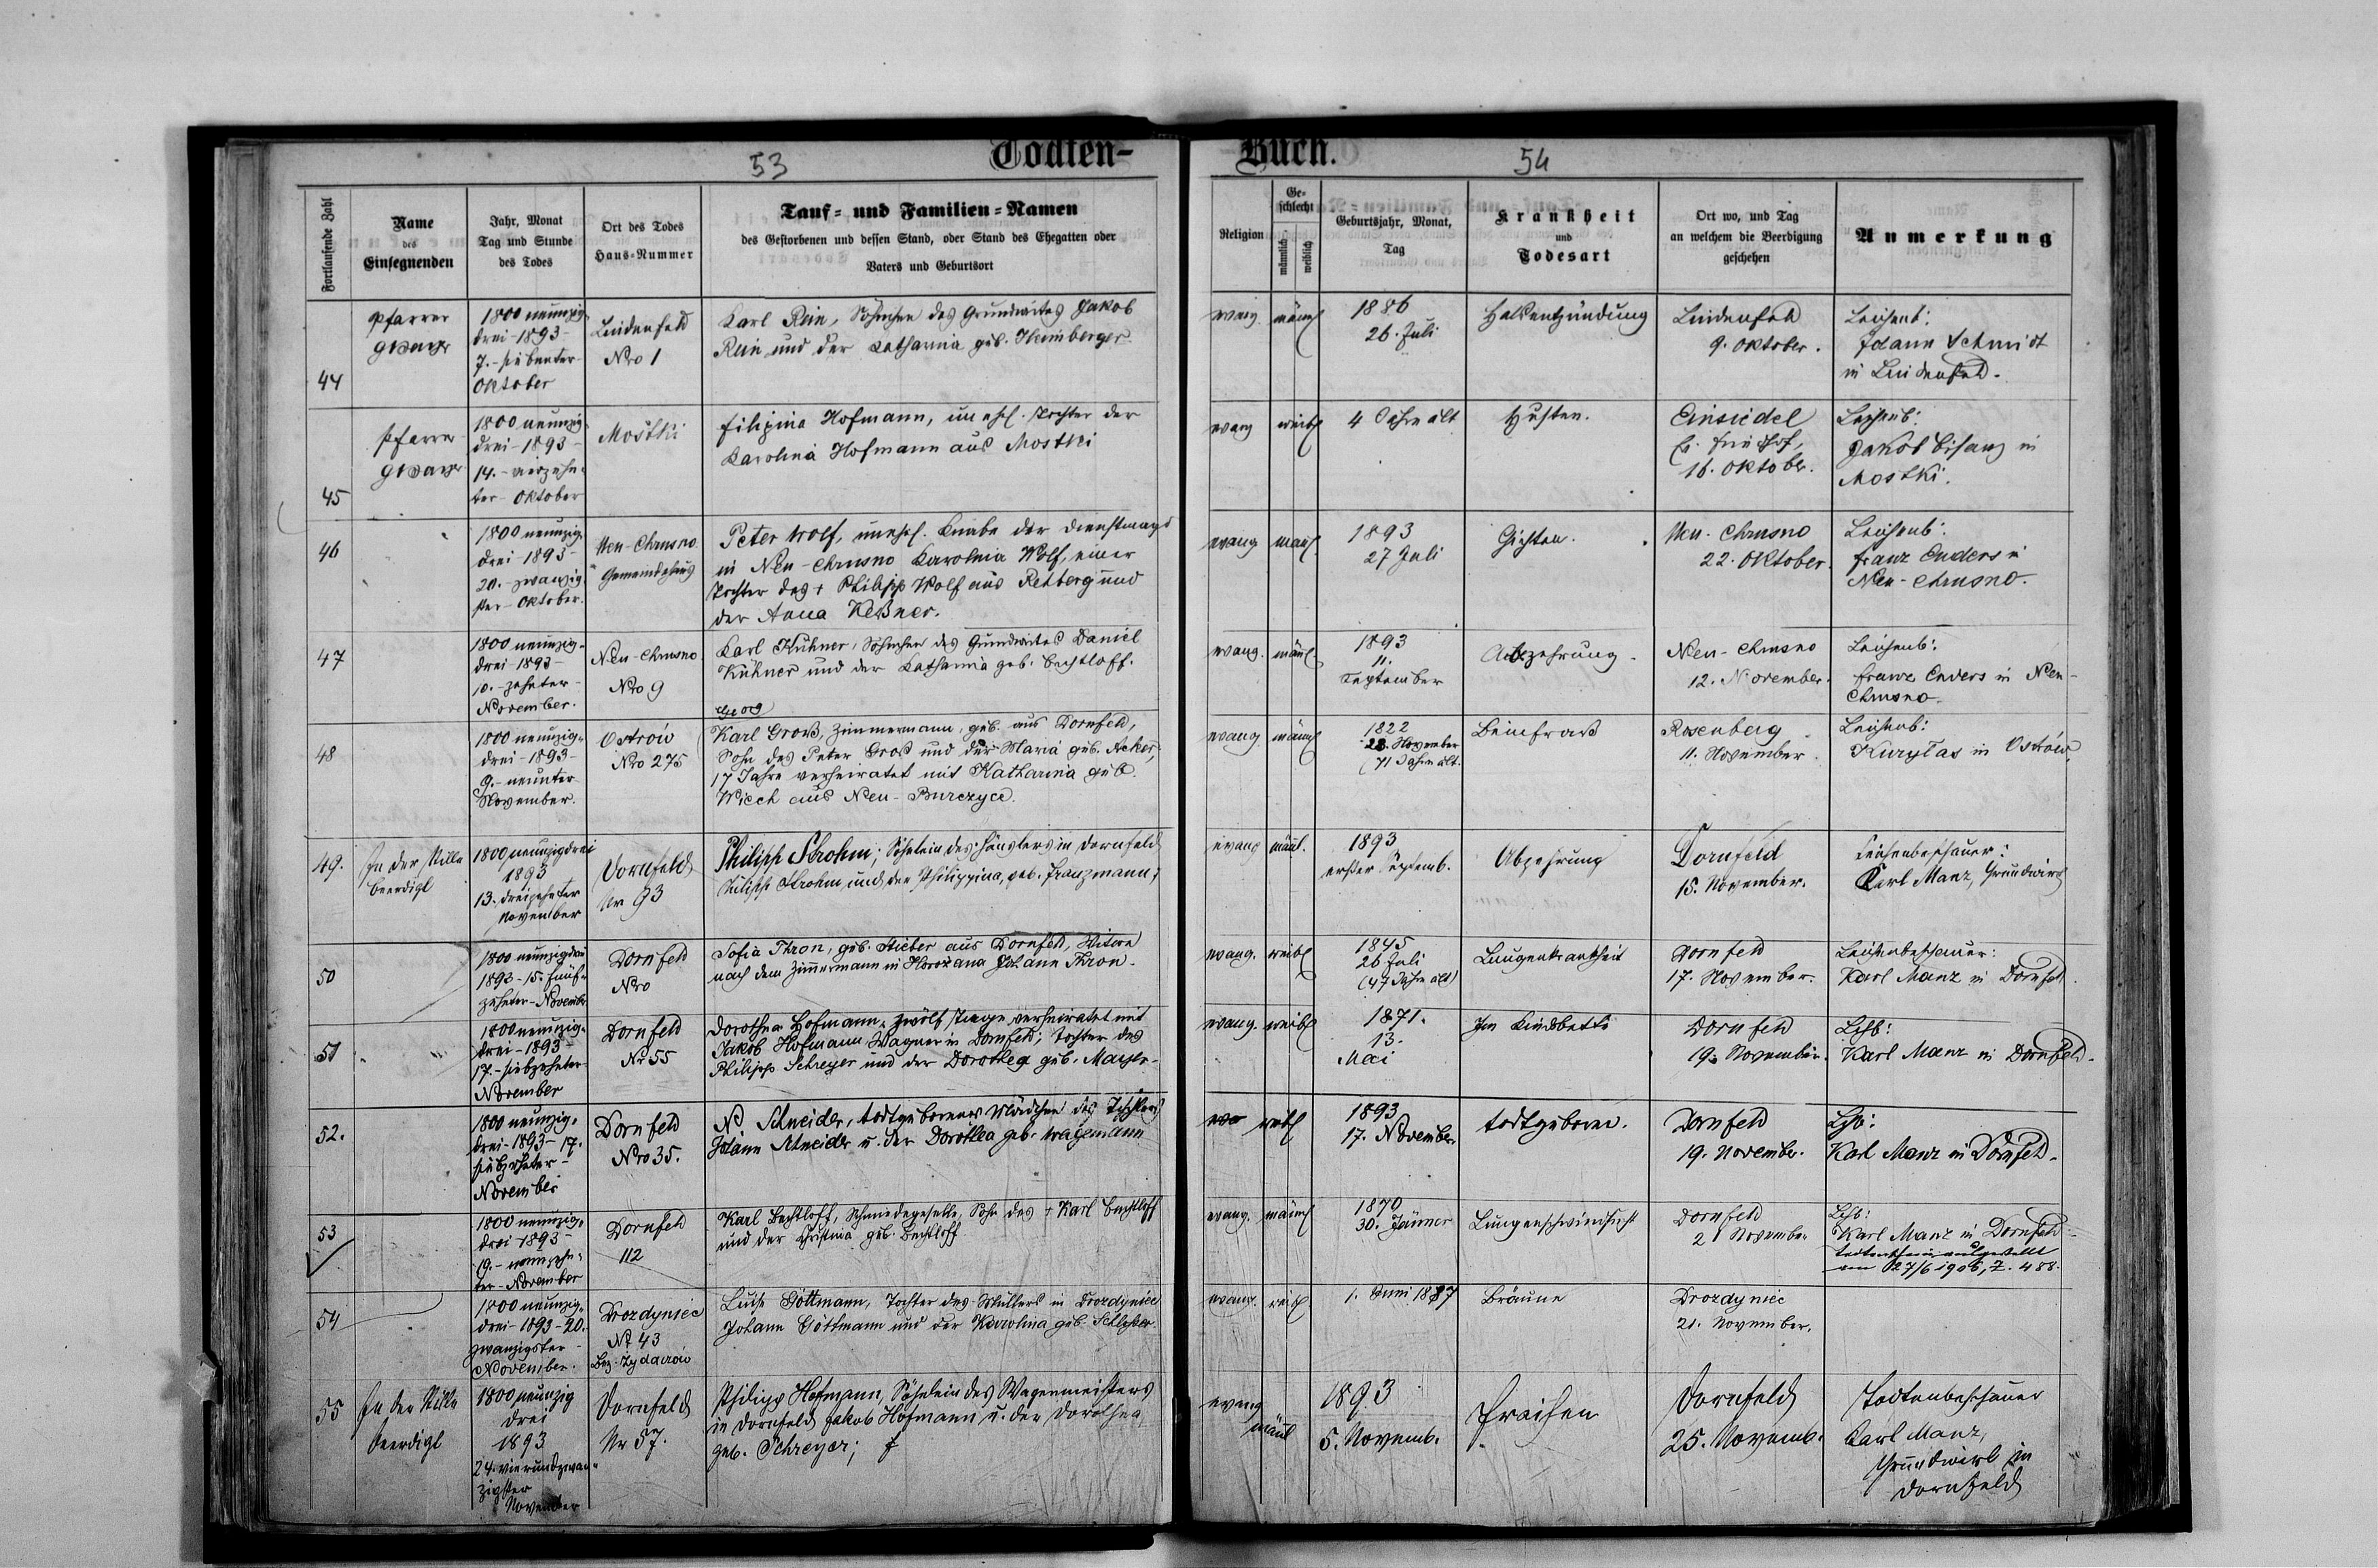 53
Todten-
Buch.
54
Fortlaufende Zahl
Name
des
Einsegnenden
Jahr, Monat
Tag und Stunde
des Todes
Ort des Todes
Haus-Nummer
Tauf- und Familien-Namen
des Gestorbenen und dessen Stand, oder Stand des Ehegatten oder
Vaters und Geburtsort
Religion
Ge-
schlecht
männlich
weiblich
Geburtsjahr, Monat,
Tag
Krankheit
und
Todesart
Ort wo, und Tag
an welchem die Beerdigung
geschehen
Anmerkung
44
Pfarrer
1800 neunzig-
drei-1893-
7.-siebenter-
Oktober
Lindenfeld
Nro 1
Karl Rein, Söhnchen des Grundwirtes Jakob
Rein und der Katharina geb. Heimberger
evang
männl
1886
26. Juli
Halsentzündung
Lindenfeld
9. Oktober.
Leichenb:
Johann Schmidt
in Lindenfeld.
45
Pfarrer
1800 neunzig-
drei-1893-
14.-vierzehn-
ter-Oktober
Mostki
Filipina Hofmann, unehl. Tochter der
Karolina Hofmann aus Mostki
evang
weibl
4 Jahre alt
Husten.
Einsiedel
Friedhof,
16. Oktober.
Leichenb:
Jakob Bisanz in
Mostki.
46
1800 neunzig-
drei 1893-
20.-zwanzig
ster-Oktober.
Neu-Chrusno
Gemeindehaus
Peter Wolf, unehel. Knabe der Dienstmagd
in Neu-Chrusno Karolina Wolf, einer
Tochter des + Philipp Wolf aus Rehberg und
der Anna Keßner.
evang
männl
1893
27 Juli
Gichten.
Neu-Chrusno
22. Oktober.
Leichenb:
Franz Enders in
Neu-Chrusno.
47
1800 neunzig-
drei 1893-
10.-zehnter-
November.
Neu-Chrusno
Nro 9
Karl Kühner, Söhnchen des Grundwirtes Daniel
Kühner und der Katharina geb. Bechtloff.
evang.
männl
1893
11.
September
Abzehrung.
Neu-Chrusno
12. November.
Leichenb:
Franz Enders in Neu-
Chrusno.
48
1800 neunzig-
drei-1893-
9.-neunter
November.
Ostrów
Nro 275
Georg
Karl Groß, Zimmermann, geb. aus Dornfeld,
Sohn des Peter Groß und der Maria geb. Acker,
17 Jahre verheiratet mit Katharina geb.
Wiech aus Neu-Burczyce.
evang.
männl
1822
28. November
(71 Jahre alt.
Beinfraß
Rosenberg
11. November
Leichenb:
Kurylas in Ostrów.
49.
In der Stille
beerdigt
1800 neunzigdrei
1893
13. dreizehnter
November
Dornfeld
Nr 93
Philipp Strohm; Söhnlein des Häuslers in Dornfeld
Philipp Strohm, und der Philippina, geb. Franzmann;
evang
männl.
1893
erster Septemb.
Abzehrung
Dornfeld
15. November.
Leichenbeschauer:
Karl Manz, Grundwirt
50
1800 neunzigdrei
1893-15. fünf-
zehnter-November
Dornfeld
Nro
Sofia Thron, geb. Stieber aus Dornfeld, Witwe
nach dem Zimmermann in Horożana Johann Thron.
evang.
weibl
1845
26 Juli
(47 Jahre alt)
Lungenkrankheit
Dornfeld
17. November.
Leichenbeschauer:
Karl Manz in Dornfeld.
51
1800 neunzig-
drei-1893-
17.-siebzehnter-
November
Dornfeld
No 55
Dorothea Hofmann, zwölf Tage verheiratet mit
Jakob Hofmann Wagner in Dornfeld; Tochter des
Philipp Schreyer und der Dorothea geb. Mayer.
evang.
weibl
1871.
13.
Mai
Im Kindbette
Dornfeld
19. November.
Lchb:
Karl Manz in Dornfeld.
52.
1800 neunzig-
drei-1893-17.
siebzehnter-
November
Dornfeld
Nro 35.
N. Schneider, todtgeborenes Mädchen des Tischlers
Johann Schneider u. der Dorothea geb. Wagemann
weibl
1893
17. November.
todtgeboren.
Dornfeld
19. November.
Lchb:
Karl Manz in Dornfeld.
53
1800 neunzig-
drei-1893-
19.-neunzehn-
ter-November
Dornfeld
112
Karl Bechtloff, Schmiedegeselle, Sohn des + Karl Bechtloff
und der Christina geb. Bechtloff
evang.
männl
1870
30. Jänner
Lungenschwindsucht
Dornfeld
21 November
Lchb:
Karl Manz in Dornfeld.
Todtenschein ausgestellt
am 27/6 1906, Z. 488.
54
1800 neunzig-
drei-1893-20.
zwanzigster-
November.
Drozdyniec
No 43
Bez: Żydaczów
Luise Göttmann, Tochter des Müllers in Drozdyniec
Johann Göttmann und der Karolina geb. Schlosser.
evang.
weibl
1. Juni 1887
Bräune
Drozdyniec
21. November.
55
In der Stille
beerdigt
1800 neunzig
drei
1893
24. vierundzwan-
zigster
November
Dornfeld
Nr 57.
Philipp Hofmann, Söhnlein des Wagenmeisters
in Dornfeld Jakob Hofmann u. der Dorothea
geb. Schreyer;
evang
männl
1893
5. Novemb.
Fraisen
Dornfeld
25. Novemb.
Todtenbeschauer
Carl Manz,
Grundwirt in
Dornfeld